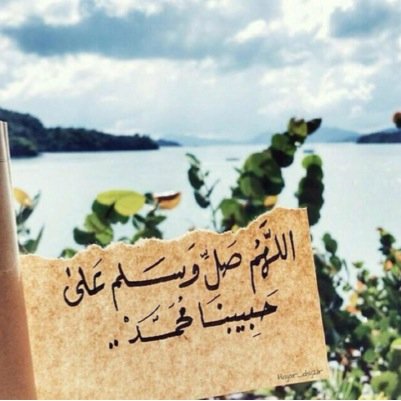 اللَّهُمَّ صَلِّ وَسَلِّم عَلىٰ
حَبِيبنَا مُحَمَّدْ ..